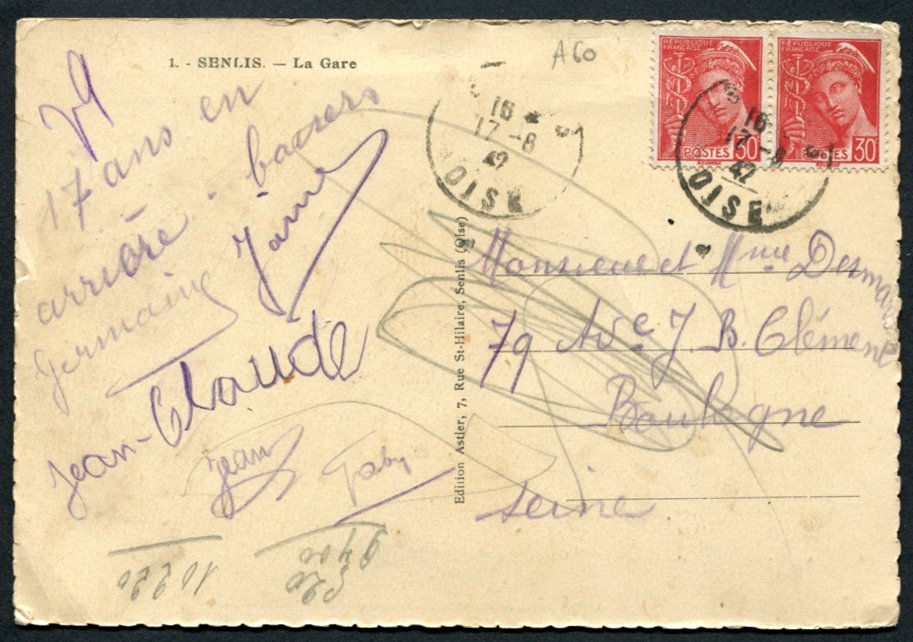 1. - SENLIS. — La Gare
A60
17 ans en
arrière . baisers
Germaine
Jean-Claude
Jean
Gaby
Edition Astier, 7, Rue St-Hilaire, Senlis (Oise)
REPUBLIQUE FRANÇAISE
POSTES 30
REPUBLIQUE FRANÇAISE
POSTES 30
16
17-8
42
OISE
16
17-8
42
OISE
Monsieur et Mme
79 Ave J. B. Clément
Boulogne
Seine